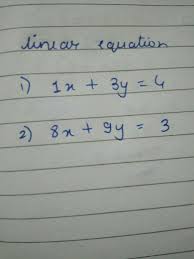 linear equation
1) 1x + 3y = 4
2) 8x + 9y = 3